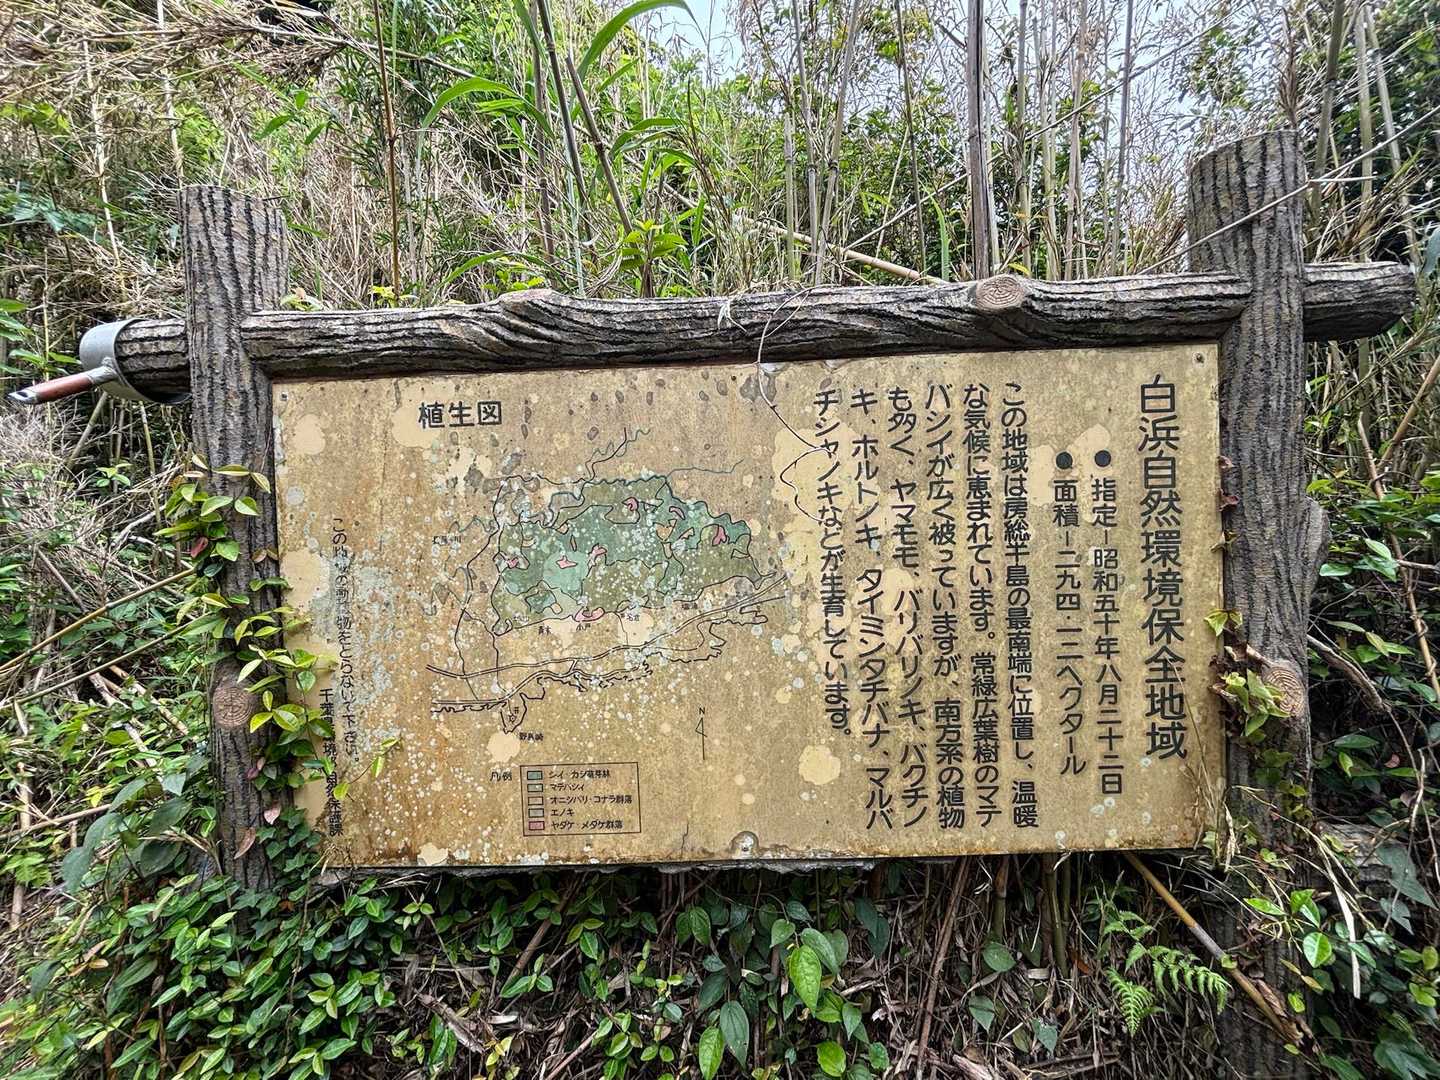 白浜自然環境保全地域
●指定－昭和五十年八月二十二日
●面積－二九四・一二ヘクタール
この地域は房総半島の最南端に位置し、温暖
な気候に恵まれています。常緑広葉樹のマテ
バシイが広く被っていますが、南方系の植物
も多く、ヤマモモ、バリバリノキ、バクチノ
キ、ホルトノキ、タイミンタチバナ、マルバ
チシャノキなどが生育しています。
植生図
青木
小戸
名倉
野島崎
N
凡例
シイ カシ萌芽林
マテバシイ
オニシバリ・コナラ群落
エノキ
ヤダケ・メダケ群落
この の 物をとらないで下さい。
千葉 境 自然保護課